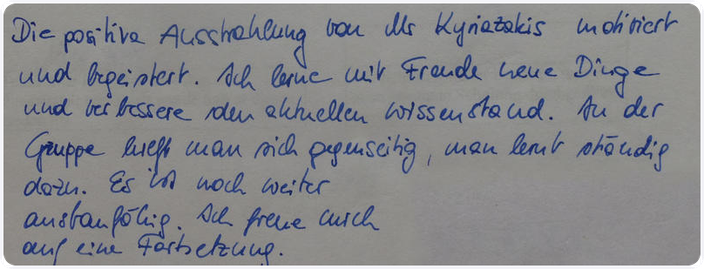 Die positive Ausstrahlung von Mr Kyriazakis motiviert
und begeistert. Ich lerne mit Freude neue Dinge
und verbessere den aktuellen Wissenstand. In der
Gruppe hilft man sich gegenseitig, man lernt ständig
dazu. Es ist noch weiter
ausbaufähig. Ich freue mich
auf eine Fortsetzung.